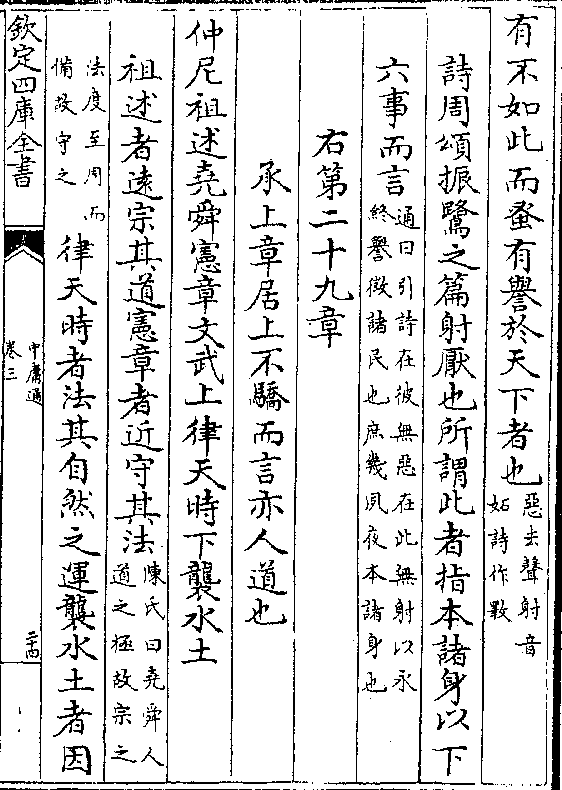 有不如此而蚤有譽於天下者也惡去聲射音
妬詩作斁
詩周頌振鷺之篇射厭也所謂此者指本諸身以下
六事而言通曰引詩在彼無惡在此無射以永
終譽徴諸民也庶幾夙夜本諸身也
右第二十九章
承上章居上不驕而言亦人道也
仲尼祖述堯舜憲章文武上律天時下襲水土
祖述者遠宗其道憲章者近守其法陳氏曰堯舜人
道之極故宗之
法度至周而
備故守之律天時者法其自然之運襲水土者因
欽定四庫全書
中庸通
卷三
二十四